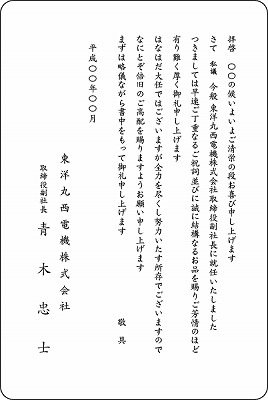 拝啓　〇〇の候いよいよご清栄の段お喜び申し上げます
さて　私儀　今般　東洋丸西電機株式会社取締役副社長に就任いたしました
つきましては早速ご丁重なるご祝詞並びに誠に結構なるお品を賜りご芳情のほど
有り難く厚く御礼申し上げます
はなはだ大任ではございますが全力を尽くし努力いたす所存でございますので
なにとぞ倍旧のご高配を賜りますようお願い申し上げます
まずは略儀ながら書中をもって御礼申し上げます
敬具
平成〇〇年〇〇月
東洋丸西電機株式会社
取締役副社長　青木忠士